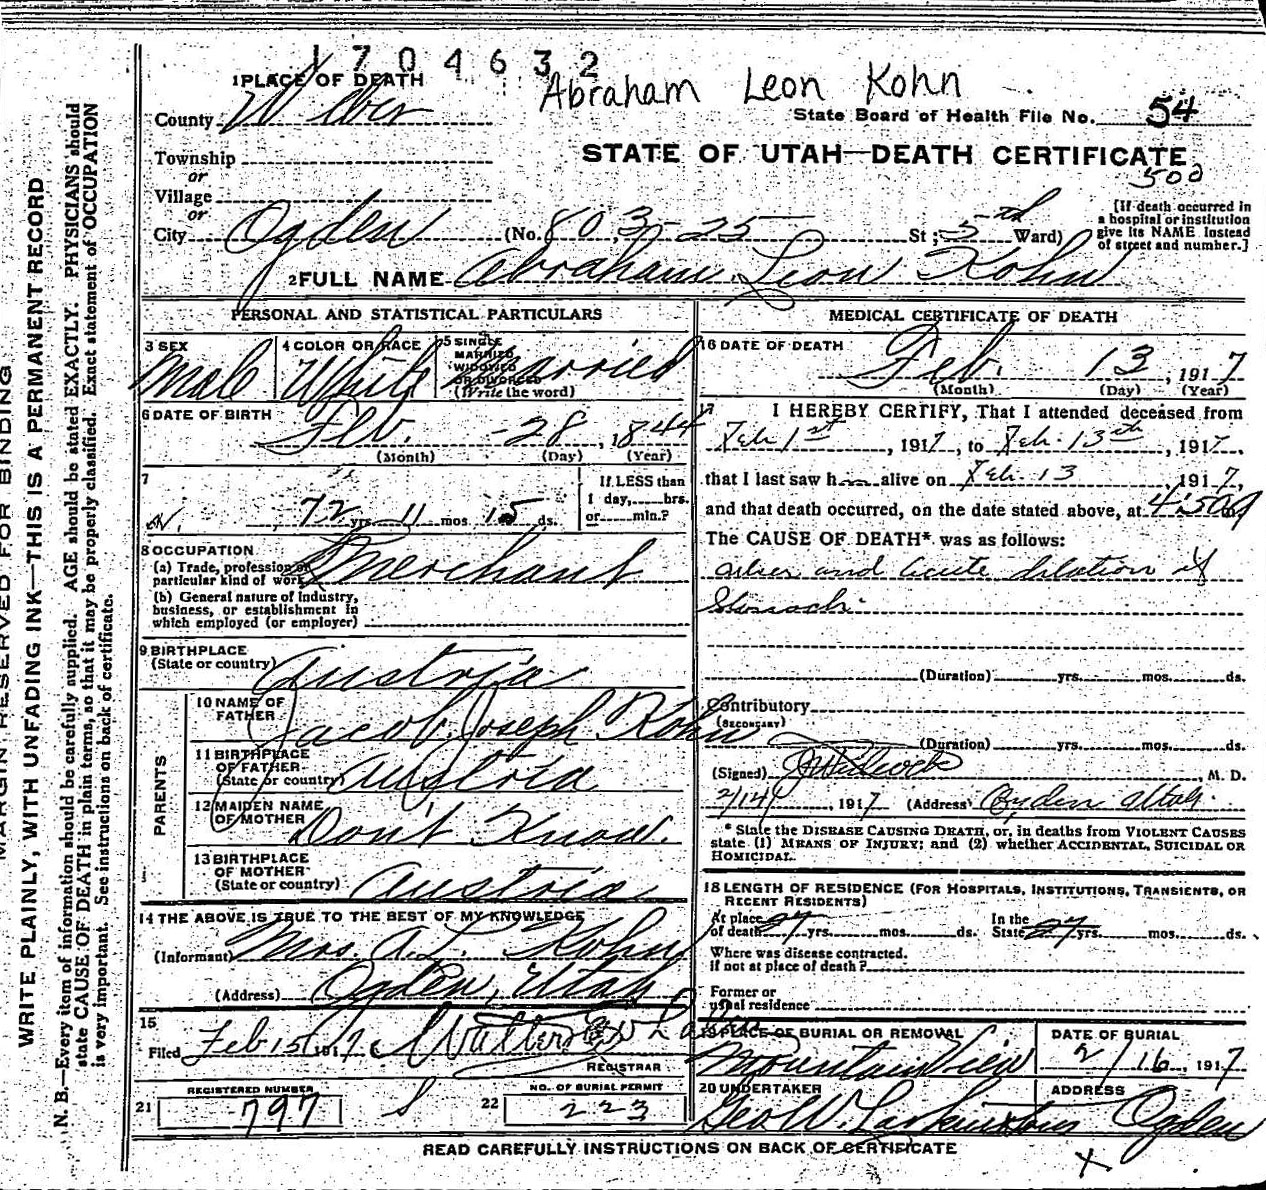 1704632
Abraham Leon Kohn
1 PLACE OF DEATH
County Weber
State Board of Health File No. 54
Township
or
STATE OF UTAH—DEATH CERTIFICATE
500
Village
or
City Ogden (No. 803-25 St; 5th Ward)
[If death occurred in a hospital or institution give its NAME instead of street and number.]
2 FULL NAME Abraham Leon Kohn
PERSONAL AND STATISTICAL PARTICULARS
3 SEX
Male
4 COLOR OR RACE
White
5 SINGLE
MARRIED
WIDOWED
OR DIVORCED
(Write the word)
Married
6 DATE OF BIRTH
Feb. -28, 1844
(Month) (Day) (Year)
7
72 yrs. 11 mos. 15 ds.
If LESS than
1 day,......hrs.
or......min.?
8 OCCUPATION
(a) Trade, profession or
particular kind of work Merchant
(b) General nature of industry,
business, or establishment in
which employed (or employer)
9 BIRTHPLACE
(State or country) Austria
PARENTS
10 NAME OF
FATHER Jacob Joseph Kohn
11 BIRTHPLACE
OF FATHER
(State or country) Austria
12 MAIDEN NAME
OF MOTHER Don't Know.
13 BIRTHPLACE
OF MOTHER
(State or country) Austria
14 THE ABOVE IS TRUE TO THE BEST OF MY KNOWLEDGE
(Informant) Mrs. A. L. Kohn
(Address) Ogden, Utah
15
Filed Feb 15 1917
REGISTRAR
REGISTERED NUMBER
21 797
NO. OF BURIAL PERMIT
22 223
MEDICAL CERTIFICATE OF DEATH
16 DATE OF DEATH
Feb. 13, 1917
(Month) (Day) (Year)
17 I HEREBY CERTIFY, That I attended deceased from
Feb 1st, 1917, to Feb. 13th, 1917,
that I last saw him alive on Feb. 13, 1917,
and that death occurred, on the date stated above, at
The CAUSE OF DEATH* was as follows:
ulcer and acute dilation of
Stomach
(Duration) yrs. mos. ds.
Contributory
(SECONDARY)
(Duration) yrs. mos. ds.
(Signed) , M. D.
2/14, 1917 (Address) Ogden Utah.
* State the DISEASE CAUSING DEATH, or, in deaths from VIOLENT CAUSES
state (1) MEANS OF INJURY; and (2) whether ACCIDENTAL, SUICIDAL OR
HOMICIDAL.
18 LENGTH OF RESIDENCE (FOR HOSPITALS, INSTITUTIONS, TRANSIENTS, OR
RECENT RESIDENTS)
At place
of death 27 yrs. mos. ds.
In the
State 27 yrs. mos. ds.
Where was disease contracted.
if not at place of death?
Former or
usual residence
19 PLACE OF BURIAL OR REMOVAL
Mountain View
DATE OF BURIAL
2/16, 1917
20 UNDERTAKER
Geo W. Larkin & Sons
ADDRESS
Ogden
READ CAREFULLY INSTRUCTIONS ON BACK OF CERTIFICATE
X
MARGIN RESERVED FOR BINDING
WRITE PLAINLY, WITH UNFADING INK—THIS IS A PERMANENT RECORD
N. B.—Every item of information should be carefully supplied. AGE should be stated EXACTLY. PHYSICIANS should
state CAUSE OF DEATH in plain terms, so that it may be properly classified. Exact statement of OCCUPATION
is very important. See instructions on back of certificate.